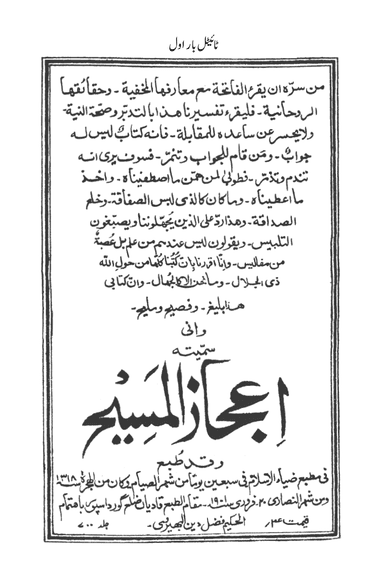 ٹائیٹل بار اول
من سرّه ان يقرء الفاتحة مع معارفها المخفية۔ وحقائقها
الروحانية۔ فليقرء تفسيرنا هذا بالتدبّر وصحّة النية۔
ولا يحسر عن ساعده للمقابلة۔ فانه كتابٌ ليس له
جوابٌ۔ ومن قام للجواب وتنمّر۔ فسوف يرى انه
تندّم وتذمّر۔ فطوبى لمن اصطفيناه۔ واخذ
ما اعطيناه۔ وما كان كالذى لبس الصفاقة۔ وخلع
الصداقة۔ وهذا ردّ على الذين يجهّلوننا ويصبغون
التلبيس۔ ويقولون ليس عندهم من علم بل عُصبةٌ
من مفاليس۔ وانا اقررنا بان كُتبنا كلّها من حول الله
ذى الجلال۔ وما نحن الا كالجُهال۔ وانّ كتابى
هذا بليغ۔ وفصيح ومليح۔
وانى
سمّيته
اعجاز المسيح
وقد طبع
فى مطبع ضياء الاسلام فى سبعين يومًا من شهر الصيام وكان من الهجرة سنة ۱۳۱۸
ومن شهر النصارى ۲۰ فرورى ۱۹۰۱۔ مقام الطبع قاديان ضلع گورداسپور باهتمام
الحكيم فضل دين البهيروى۔
جلد ۷۰۰